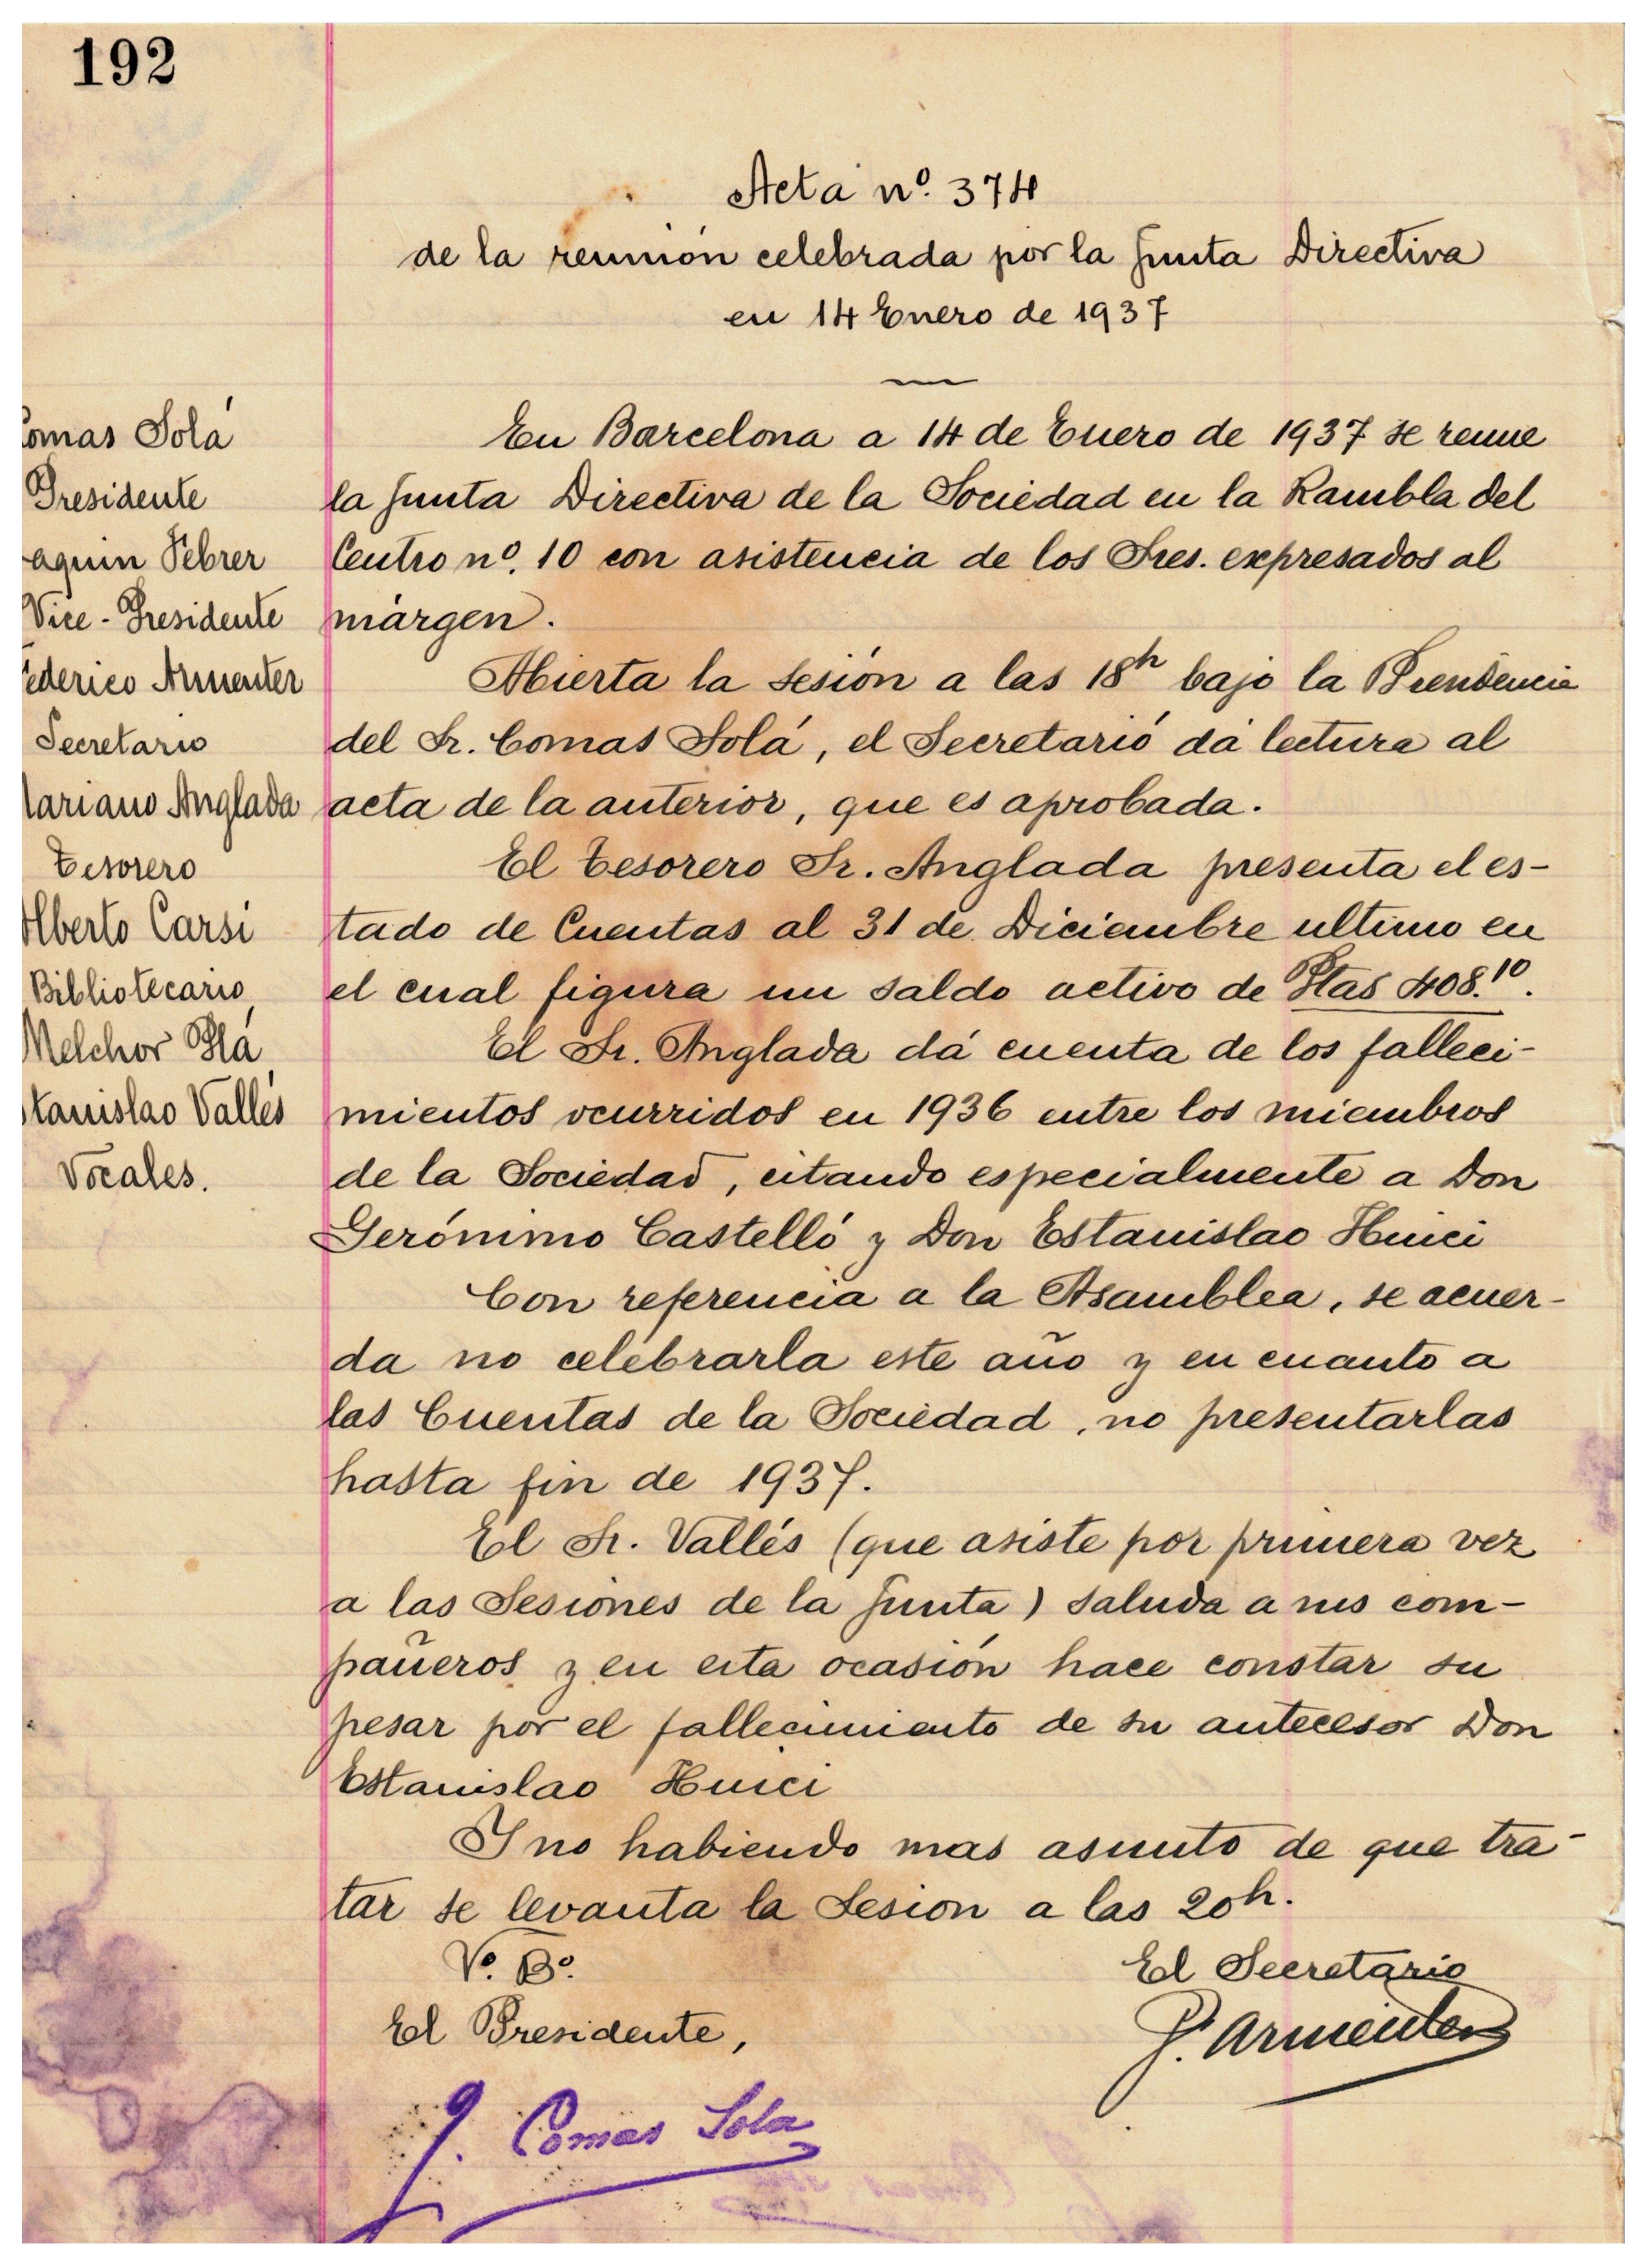 192
Acta nº. 374
de la reunión celebrada por la Junta Directiva
en 14 Enero de 1937
Comas Solá
Presidente
aquin Febrer
Vice-Presidente
ederico Armenter
Secretario
Mariano Anglada
Tesorero
Alberto Carsí
Bibliotecario
Melchor Plá
stanislao Vallés
Vocales.
En Barcelona a 14 de Enero de 1937 se reune
la Junta Directiva de la Sociedad en la Rambla del
Centro nº. 10 con asistencia de los Sres. expresados al
márgen.
Abierta la sesión a las 18h bajo la Presidencia
del Sr. Comas Solá, el Secretario dá lectura al
acta de la anterior, que es aprobada.
El Tesorero Sr. Anglada presenta el es-
tado de Cuentas al 31 de Diciembre ultimo en
el cual figura un saldo activo de Ptas 408.10.
El Sr. Anglada dá cuenta de los falleci-
mientos ocurridos en 1936 entre los miembros
de la Sociedad, citando especialmente a Don
Gerónimo Castelló y Don Estanislao Huici
Con referencia a la Asamblea, se acuer-
da no celebrarla este año y en cuanto a
las Cuentas de la Sociedad, no presentarlas
hasta fin de 1937.
El Sr. Vallés (que asiste por primera vez
a las Sesiones de la Junta) saluda a sus com-
pañeros y en esta ocasión hace constar su
pesar por el fallecimiento de su antecesor Don
Estanislao Huici
Y no habiendo mas asunto de que tra-
tar se levanta la Sesion a las 20h.
Vº. Bº.
El Presidente,
J. Comas Sola
El Secretario
F. Armenter